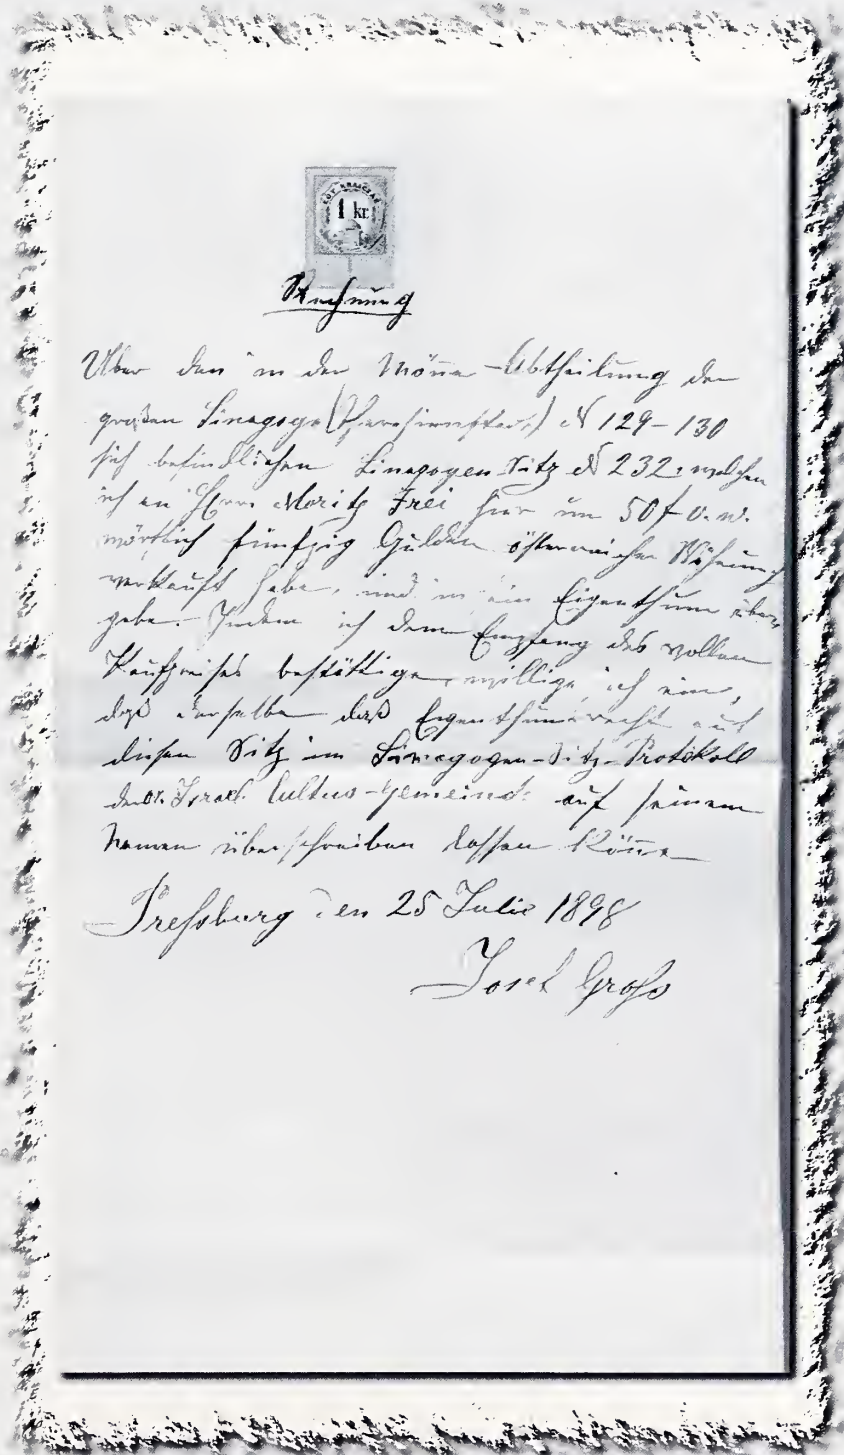 1 kr.
Rechnung
Über den in der Mäner-Abtheilung der
großen Sinagoge N 129–130
sich befindlichen Sinagogen Sitz N 232 welchen
ich an Herrn Moritz Frei hier um 50 f ö. W.
wörtlich fünfzig Gulden österreicher Währung
verkauft habe, und in sein Eigenthum über
gebe. Indem ich dem Empfang des vollen
Kaufpreises bestättige, willige ich ein,
daß derselbe das Eigenthumsrecht auf
diesen Sitz im Sinagogen-Sitz-Protokoll
der Israel. Cultus-Gemeinde auf seinem
Namen überschreiben lassen köne
Pressburg den 25 Julie 1898
Josef Gross